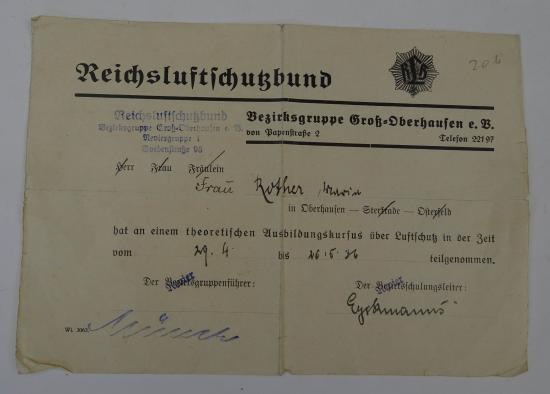 20 b
RLB
Reichsluftschutzbund
Bezirksgruppe Groß-Oberhausen e. V.
von Papenstraße 2 Telefon 22197
Reichsluftschutzbund
Bezirksgruppe Groß-Oberhausen e. V.
Reviergruppe 1
Goebenstraße 98
Herr Frau Fräulein
Frau Rother, Maria
in Oberhausen — Sterkrade — Osterfeld
hat an einem theoretischen Ausbildungskursus über Luftschutz in der Zeit
vom 29.4. bis 26.5.36 teilgenommen.
Der Bezirksgruppenführer: Der Bezirksschulungsleiter:
Revier Revier
Eyckmanns